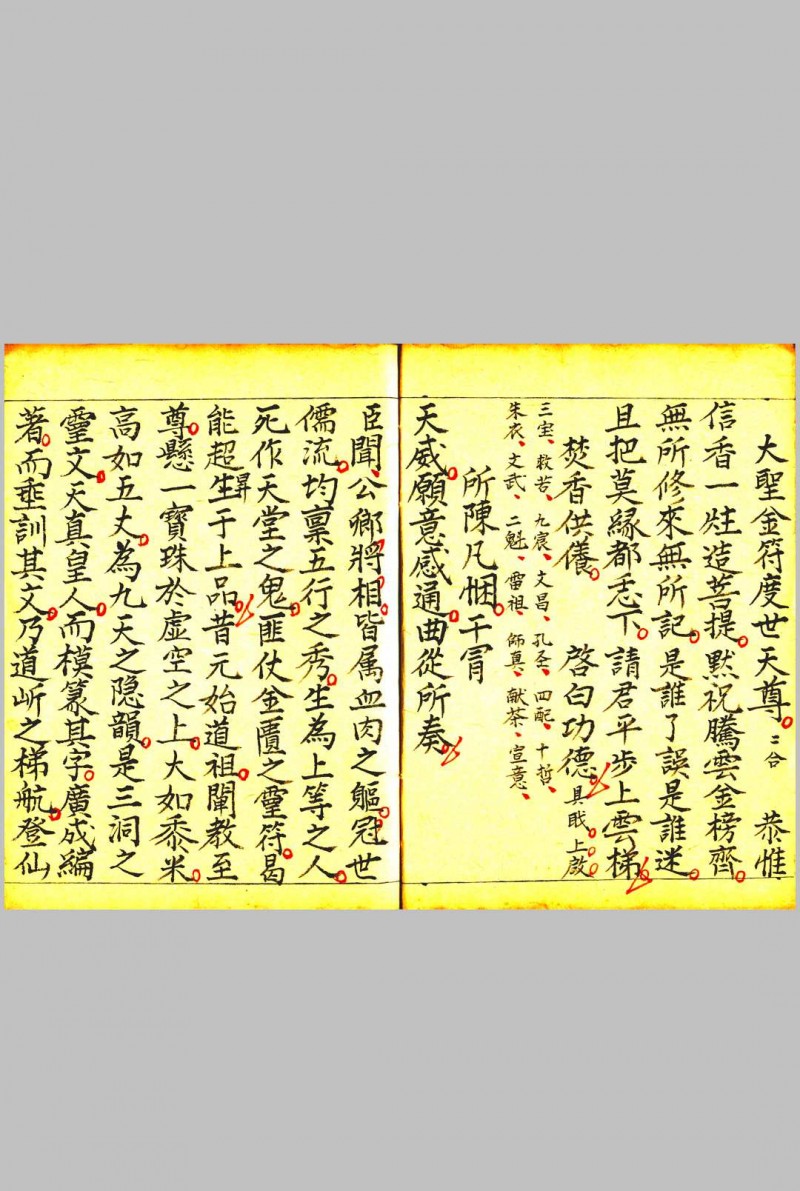 大聖金符度世天尊。二合 恭惟
信香一炷造菩提。默祝騰雲金榜齊。
無所修來無所記。是誰了誤是誰迷。
且把莫緣都丢下。請君平步上雲梯。
焚香供儀。 啓白功德。具戝。上啟。
三宝、救苦、九宸、文昌、孔圣、四配、十哲、
朱衣、文武、二魁、雷祖、師真、献茶、宣意、
所陳凡悃。干冐
天威。願意感通。曲從所奏。
臣聞、公卿將相。皆属血肉之軀。冠世
儒流。均禀五行之秀。生為上等之人。
死作天堂之鬼。匪仗金匱之靈符。曷
能超生昇于上品。昔元始道祖。闡教至
尊。懸一寶珠於虛空之上。大如黍米。
高如五丈。為九天之隐韻。是三洞之
靈文。天真皇人。而模篆其字。廣成編
著。而垂訓其文。乃道岸之梯航。登仙